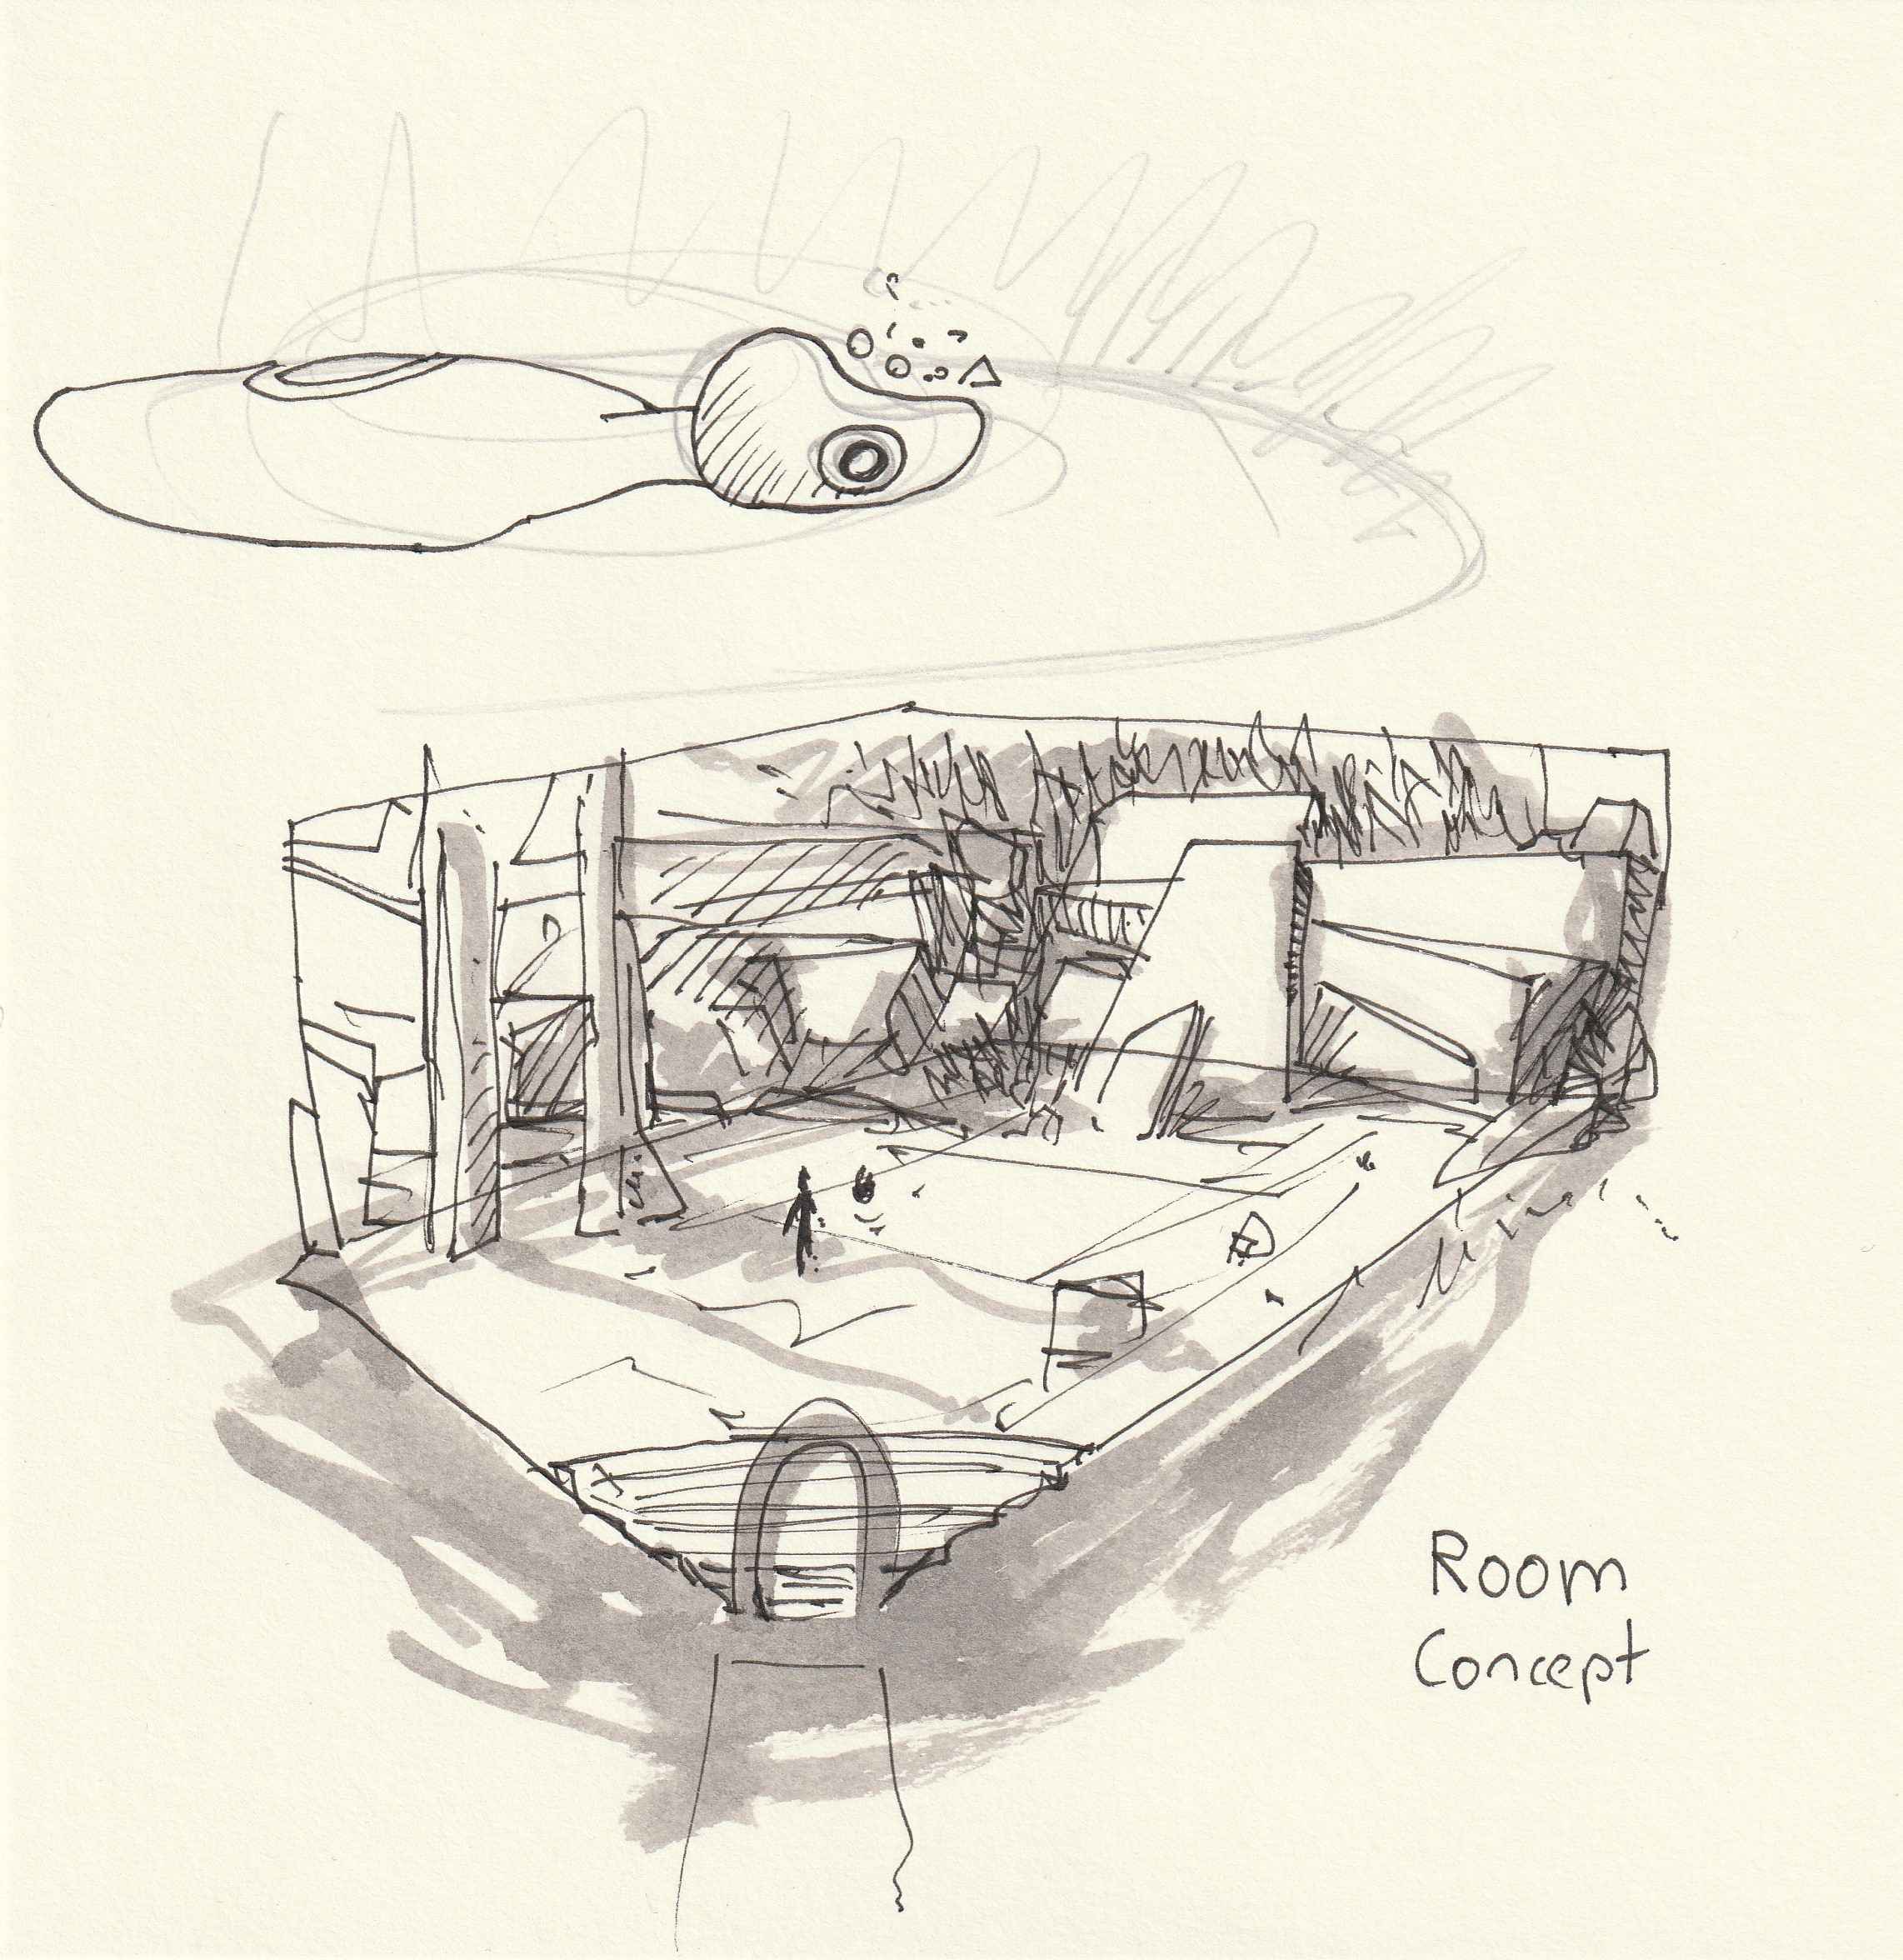 Room
Concept